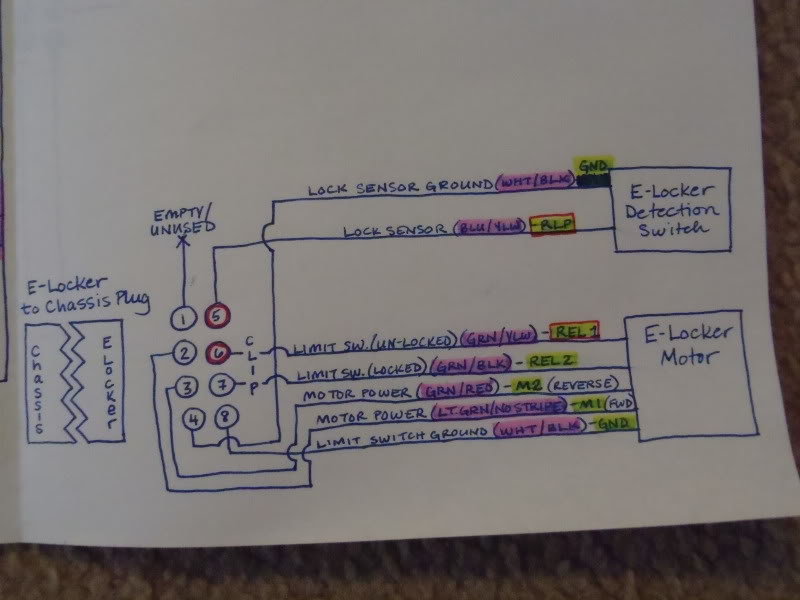 GND
LOCK SENSOR GROUND (WHT/BLK)
E-Locker
Detection
Switch
EMPTY/
UNUSED
LOCK SENSOR (BLU/YLW) - RLP
E-Locker
to Chassis Plug
1 5
2 6
3 7
4 8
CLIP
Chassis
ELocker
LIMIT SW. (UN-LOCKED) (GRN/YLW) - REL 1
LIMIT SW. (LOCKED) (GRN/BLK) - REL 2
MOTOR POWER (GRN/RED) - M2 (REVERSE)
MOTOR POWER (LT.GRN/NO STRIPE) - M1 (FWD)
LIMIT SWITCH GROUND (WHT/BLK) - GND
E-Locker
Motor